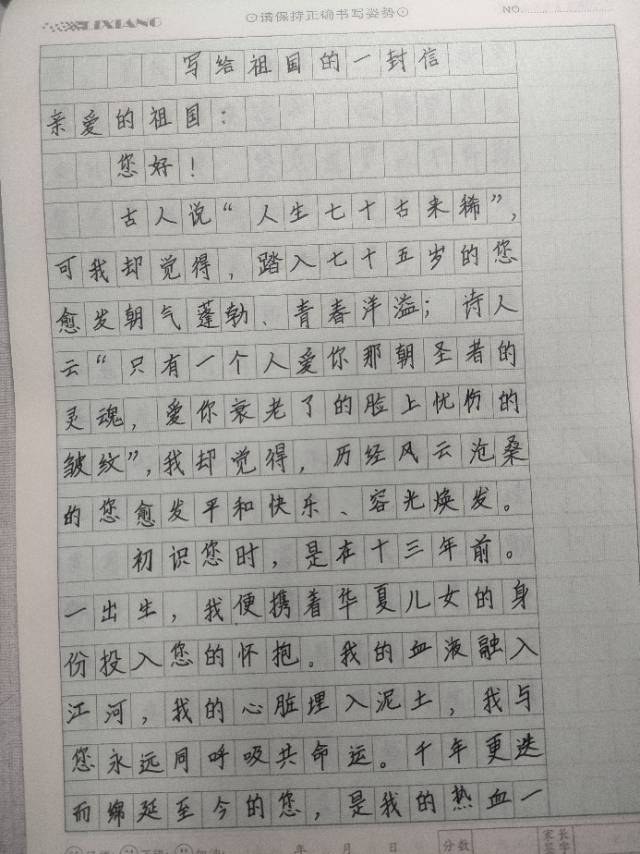 LIXIANG ⊙请保持正确书写姿势⊙ NO.
写给祖国的一封信
亲爱的祖国：
您好！
古人说“人生七十古来稀”，
可我却觉得，踏入七十五岁的您
愈发朝气蓬勃、青春洋溢；诗人
云“只有一个人爱你那朝圣者的
灵魂，爱你衰老了的脸上忧伤的
皱纹”，我却觉得，历经风云沧桑
的您愈发平和快乐、容光焕发。
初识您时，是在十三年前。
一出生，我便携着华夏儿女的身
份投入您的怀抱。我的血液融入
江河，我的心脏埋入泥土，我与
您永远同呼吸共命运。千年更迭
而绵延至今的您，是我的热血一
年 月 日 分数 家长